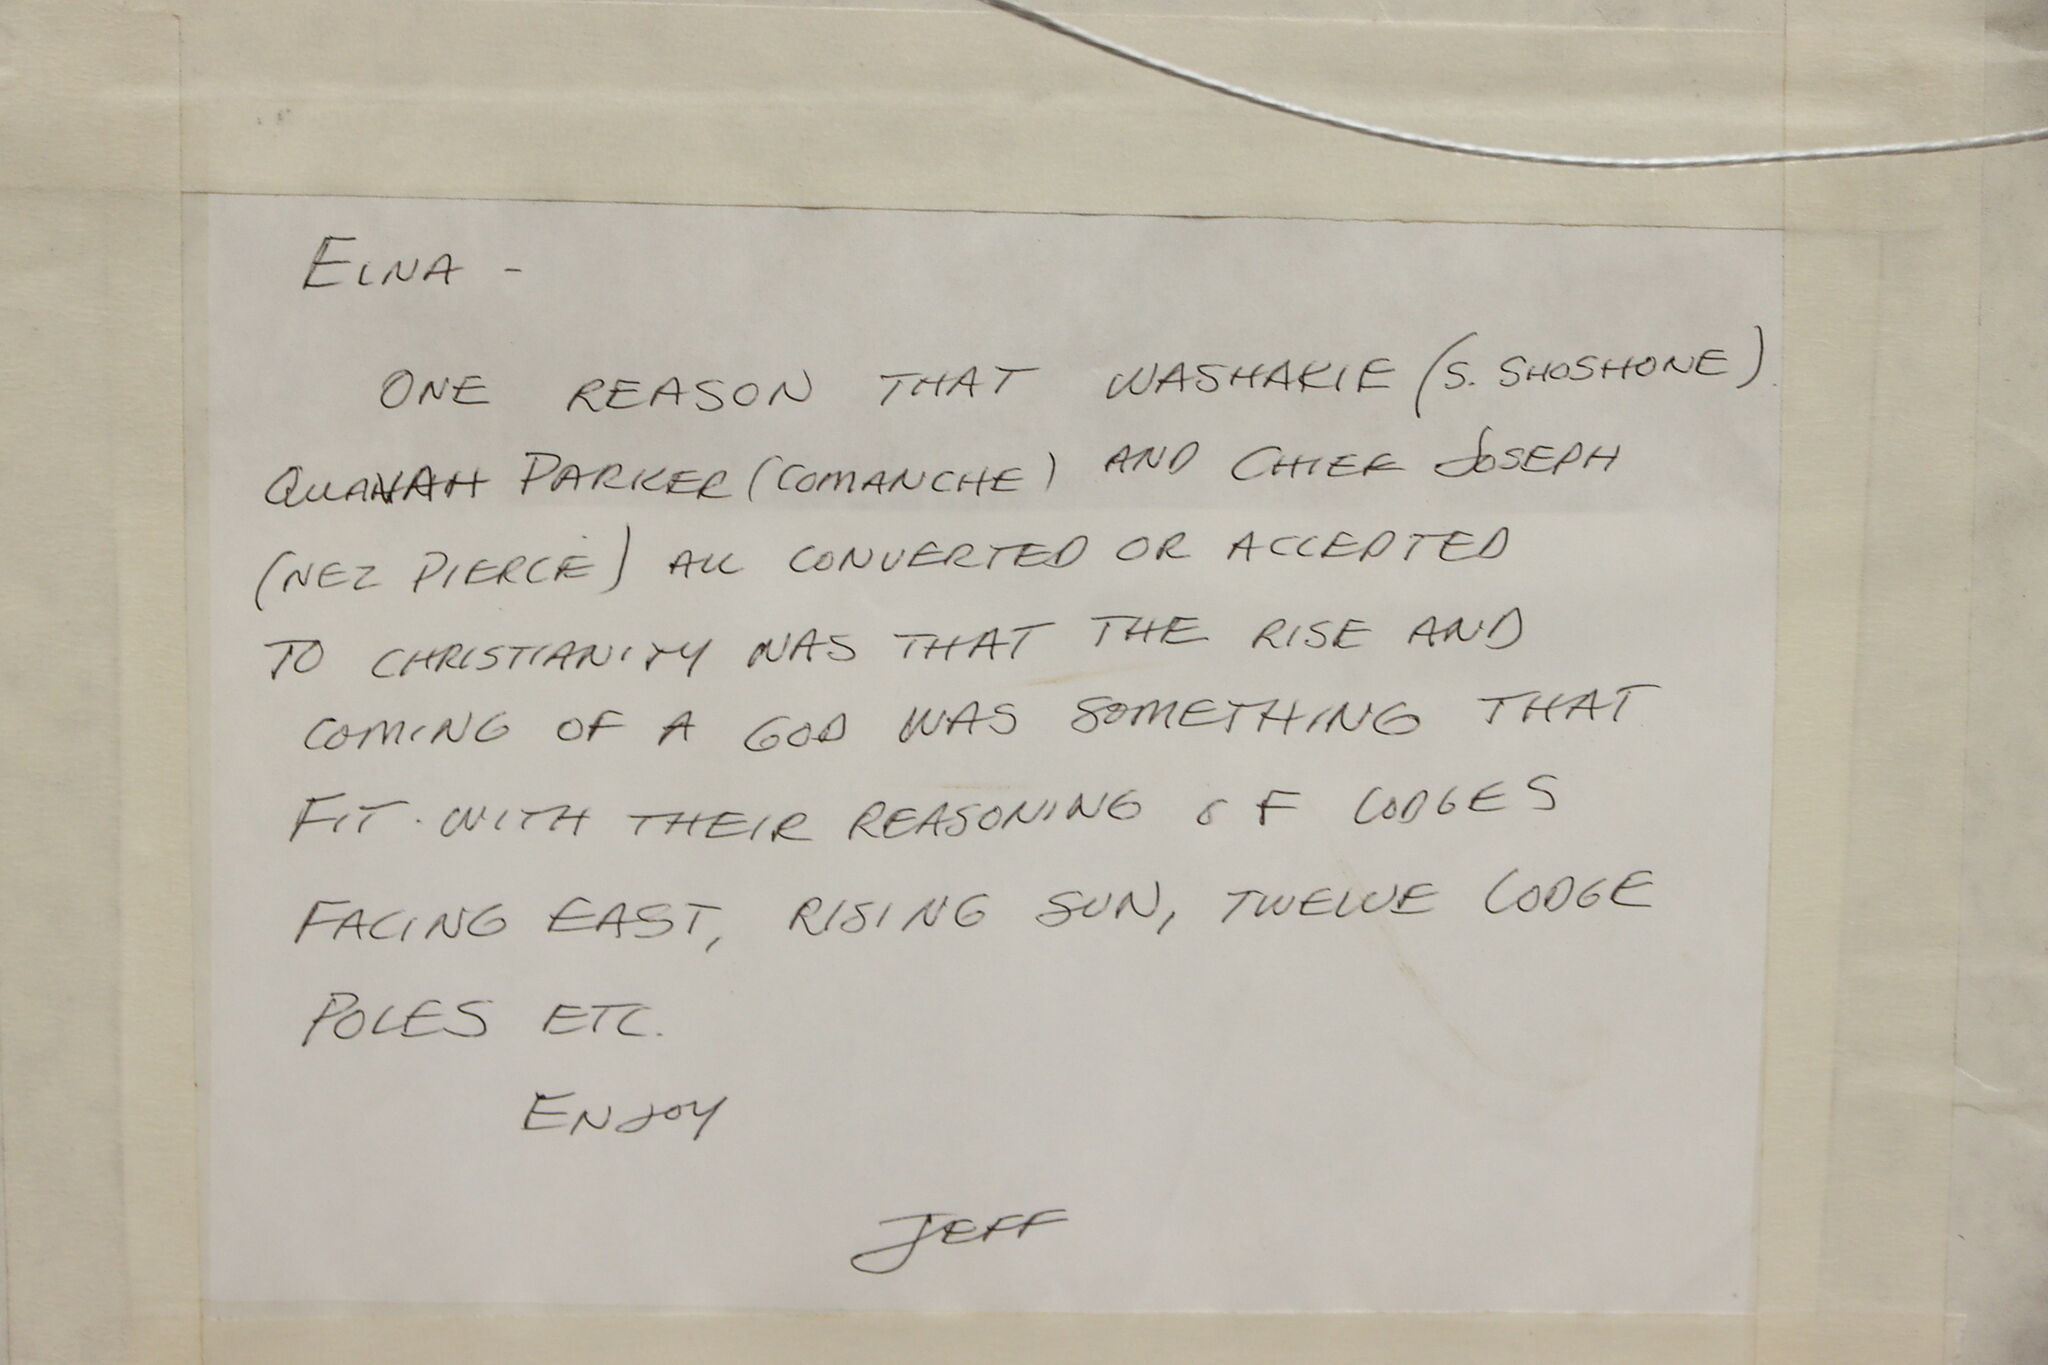 ELNA -
ONE REASON THAT WASHAKIE (S. SHOSHONE)
QUANAH PARKER (COMANCHE) AND CHIEF JOSEPH
(NEZ PIERCE) ALL CONVERTED OR ACCEPTED
TO CHRISTIANITY WAS THAT THE RISE AND
COMING OF A GOD WAS SOMETHING THAT
FIT WITH THEIR REASONING OF LODGES
FACING EAST, RISING SUN, TWELVE LODGE
POLES ETC.
ENJOY
JEFF